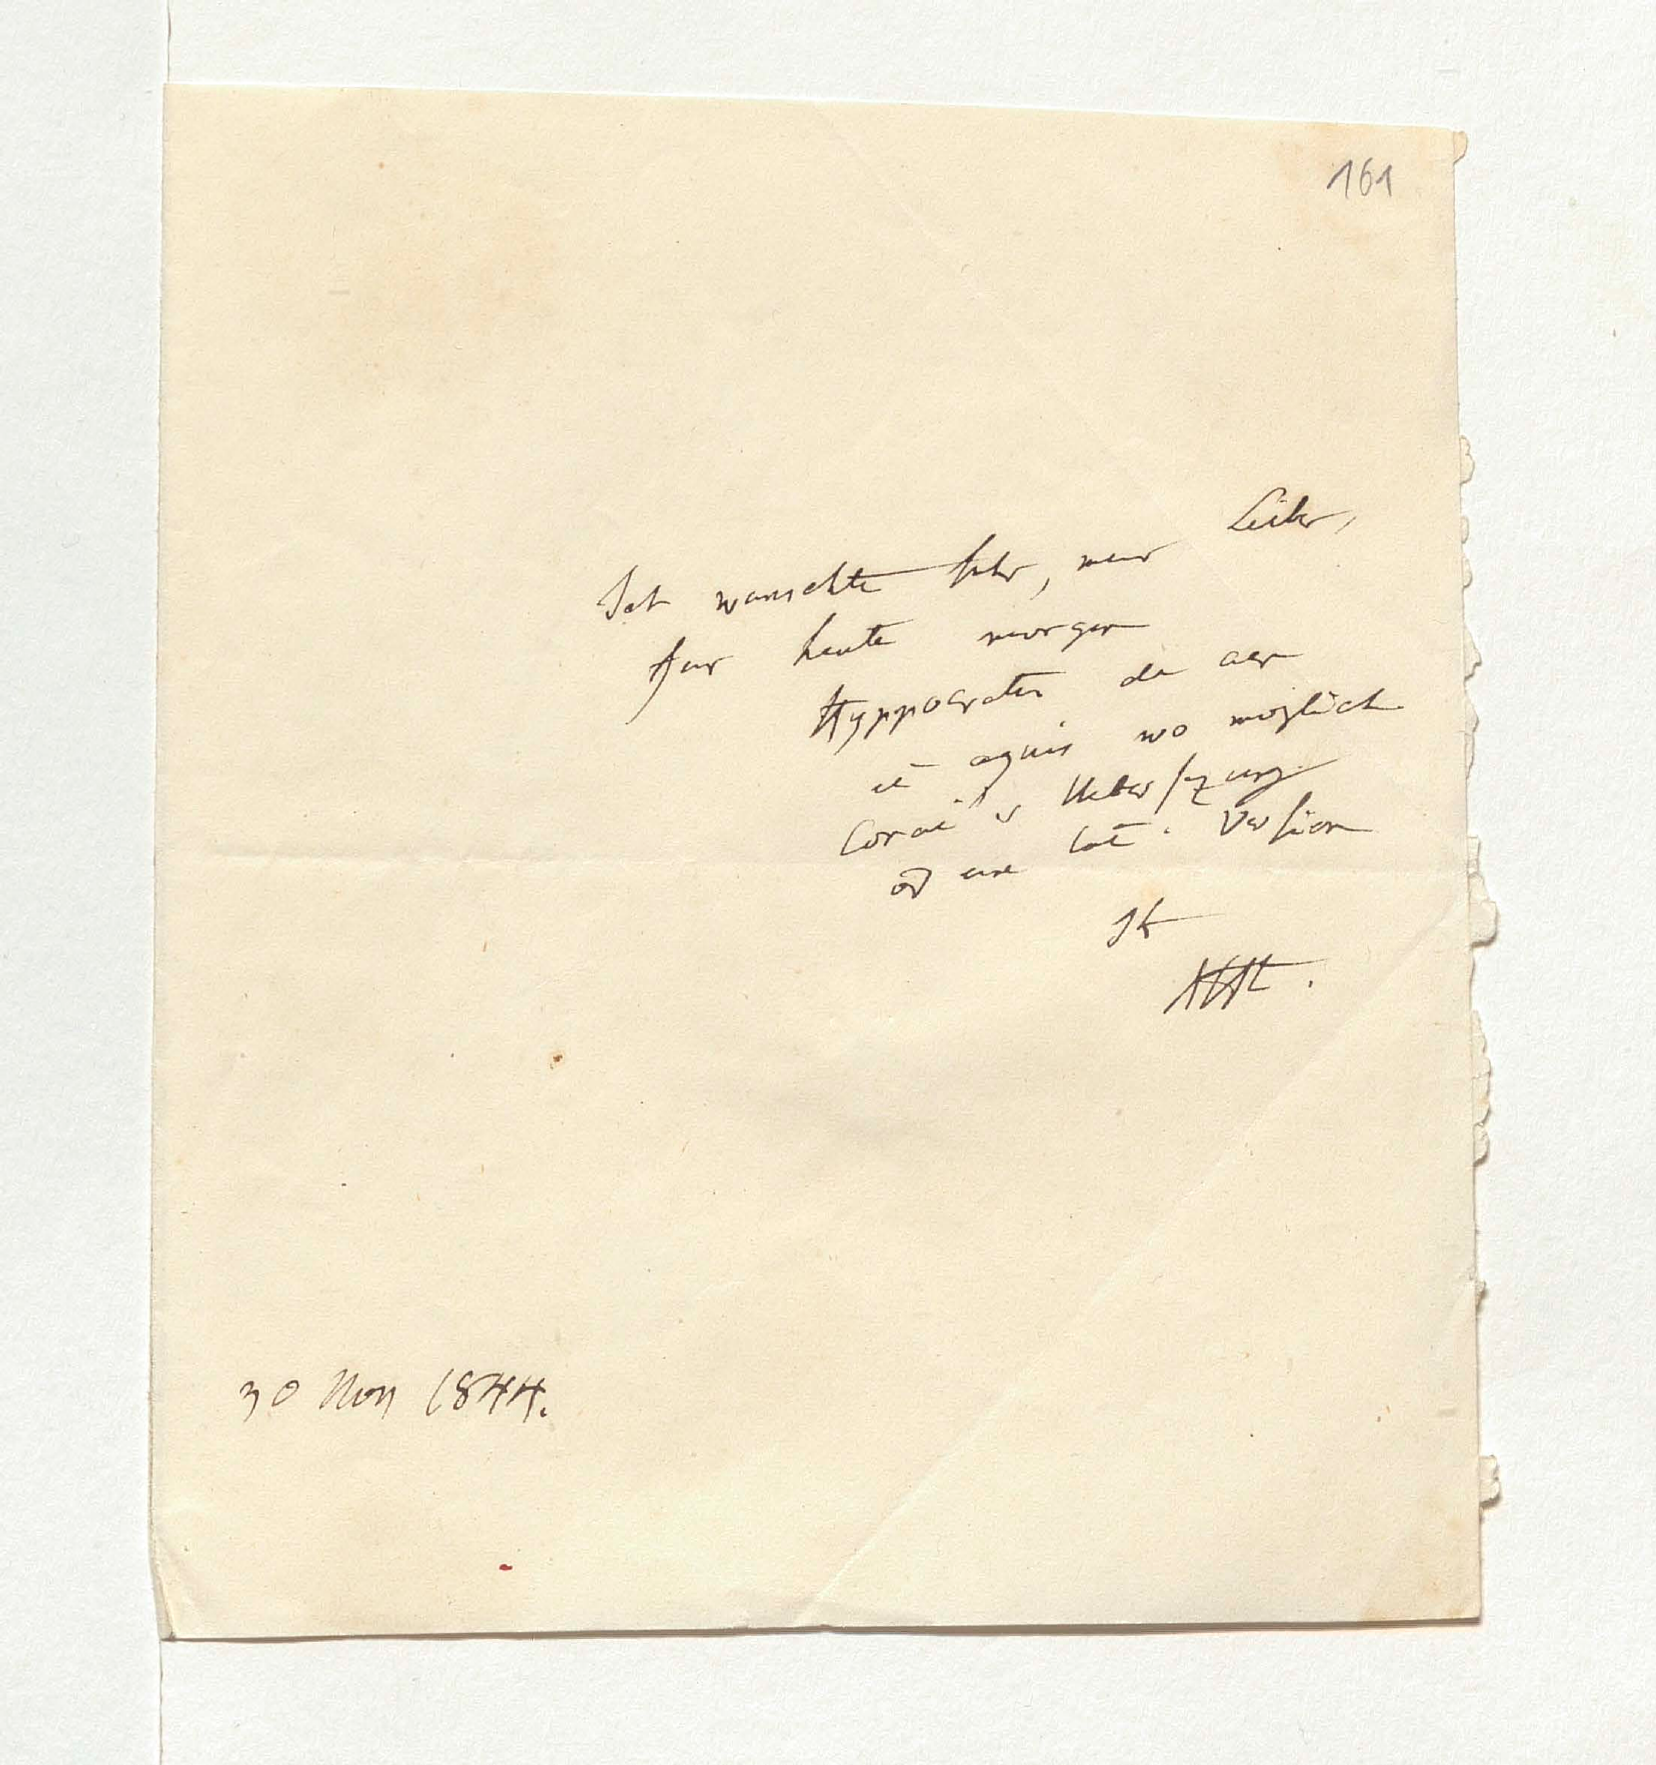 161
Ich wünschte sehr, mein Lieber,
für heute morgen
Hyppocrates de aer
et aquis wo möglich
Corai's Uebersezung
od eine lat. Version
Ihr
AHt.
30 Nov 1844.